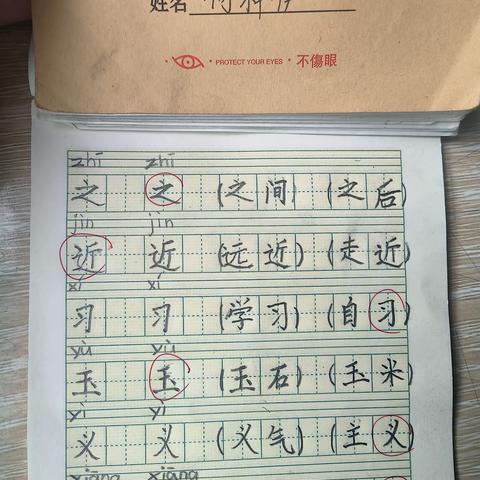 姓名
PROTECT YOUR EYES · 不傷眼
zhī zhī
之 之 (之间) (之后)
jìn jìn
近 近 (远近) (走近)
xí xí
习 习 (学习) (自习)
yù yù
玉 玉 (玉石) (玉米)
yì yì
义 义 (义气) (主义)
xiāng xiāng